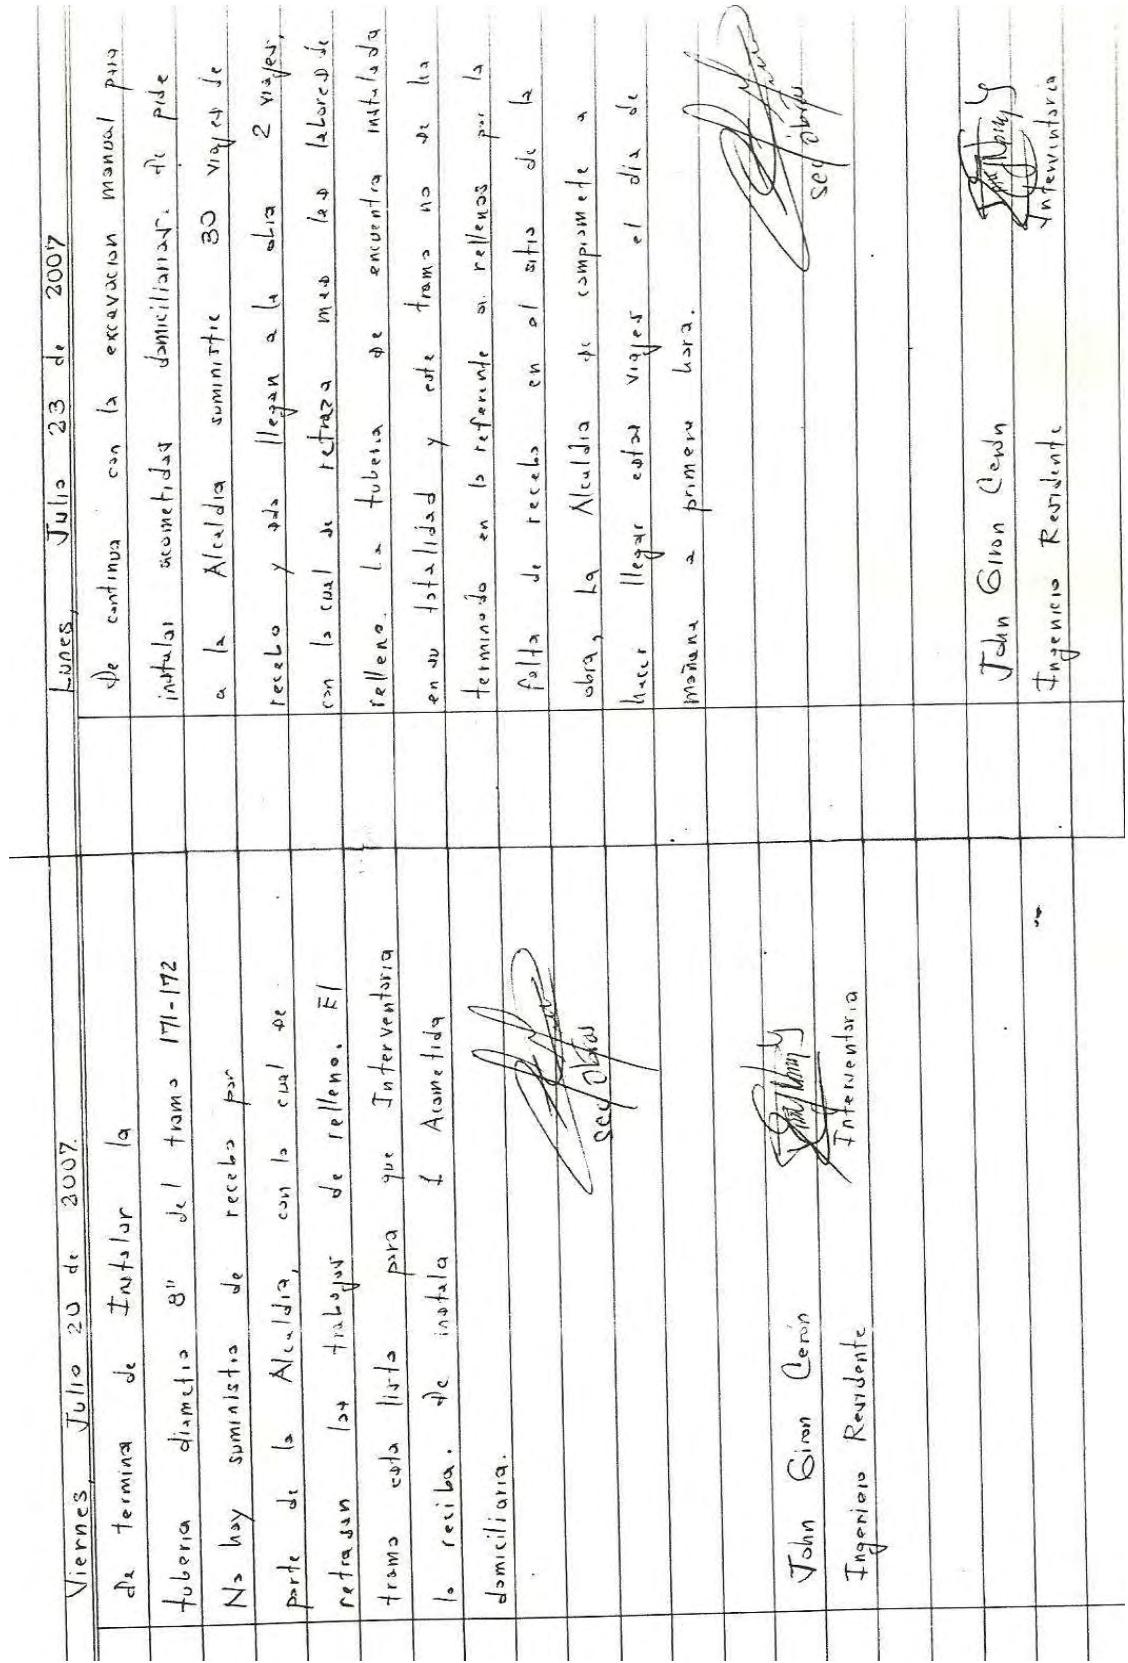 Viernes, Julio 20 de 2007.
Se termina de Instalar la
tuberia diametro 8" del tramo 171-172
No hay suministro de recebo por
parte de la Alcaldia, con lo cual se
retrasan los trabajos de relleno. El
tramo esta listo para que Interventoria
lo reciba. Se instala 1 Acometida
domiciliaria.
Sec Obras
John Giron Cerón
Ingeniero Residente
Interventoria
Lunes, Julio 23 de 2007
Se continua con la excavacion manual para
instalar acometidas domiciliarias. Se pide
a la Alcaldia suministre 30 viajes de
recebo y solo llegan a la obra 2 viajes,
con lo cual se retraza mas las labores de
relleno. La tuberia se encuentra instalada
en su totalidad y este tramo no se ha
terminado en lo referente a rellenos por la
falta de recebo en el sitio de la
obra, La Alcaldia se compromete a
hacer llegar estos viajes el dia de
mañana a primera hora.
Sec Obras
John Giron Cerón
Ingeniero Residente
Interventoria